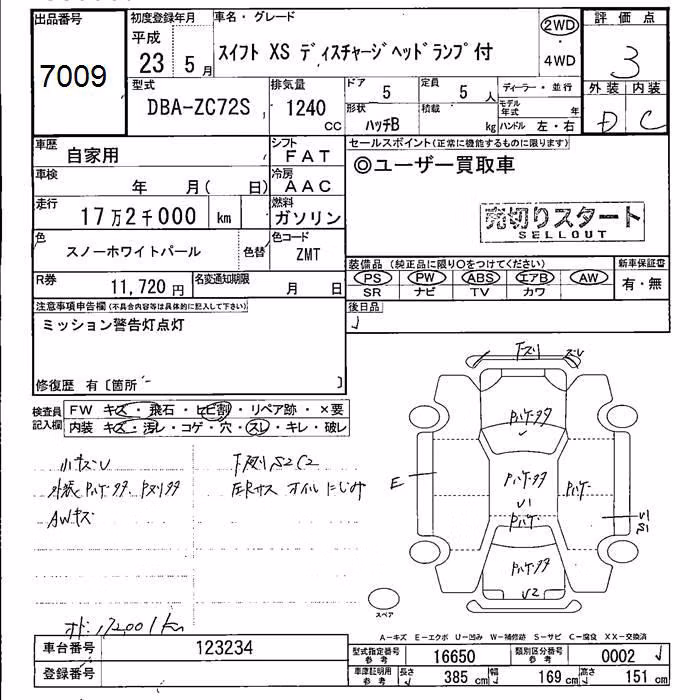 出品番号
7009
初度登録年月
平成
23 5 月
車名・グレード
スイフト XS ディスチャージヘッドランプ付
2WD
・
4WD
評価点
3
外装 内装
D C
型式
DBA-ZC72S
排気量
1240
CC
ドア
5
定員
5 人
形状
ハッチB
積載
kg
ディーラー・並行
モデル年式 年
ハンドル 左・右
車歴
自家用
シフト
FAT
車検
年 月( 日)
冷房
AAC
走行
17万2千000 km
燃料
ガソリン
色
スノーホワイトパール
色替
色コード
ZMT
R券
11,720 円
名変通知期限
月 日
セールスポイント(正常に機能するものに限ります)
◎ユーザー買取車
売切りスタート
SELLOUT
装備品(純正品に限り〇をつけてください)
PS PW ABS エアB AW
SR ナビ TV カワ
新車保証書
有・無
後日品
注意事項申告欄(不具合内容等は具体的に記入して下さい)
ミッション警告灯点灯
修復歴 有〔箇所 〕
検査員記入欄
FW キズ・飛石・ヒビ割・リペア跡・×要
内装 キズ・汚レ・コゲ・穴・スレ・キレ・破レ
小キズU
外装 Pハゲ タタ Pヌリ タタ
AWキズ
下廻り S2C2
左Rサス オイルにじみ
オド:172001km
下スリ
ズレ
Pハゲ タタ
Pハゲ タタ
U1
Pハゲ
Pハゲ
E
U1
S1
Pハゲ タタ
U2
スペア
A-キズ E-エクボ U-凹み W-補修跡 S-サビ C-腐食 XX-交換済
車台番号
123234
登録番号
型式指定番号
参考
16650
類別区分番号
参考
0002
車庫証明用
参考
長さ 385 cm
幅 169 cm
高さ 151 cm